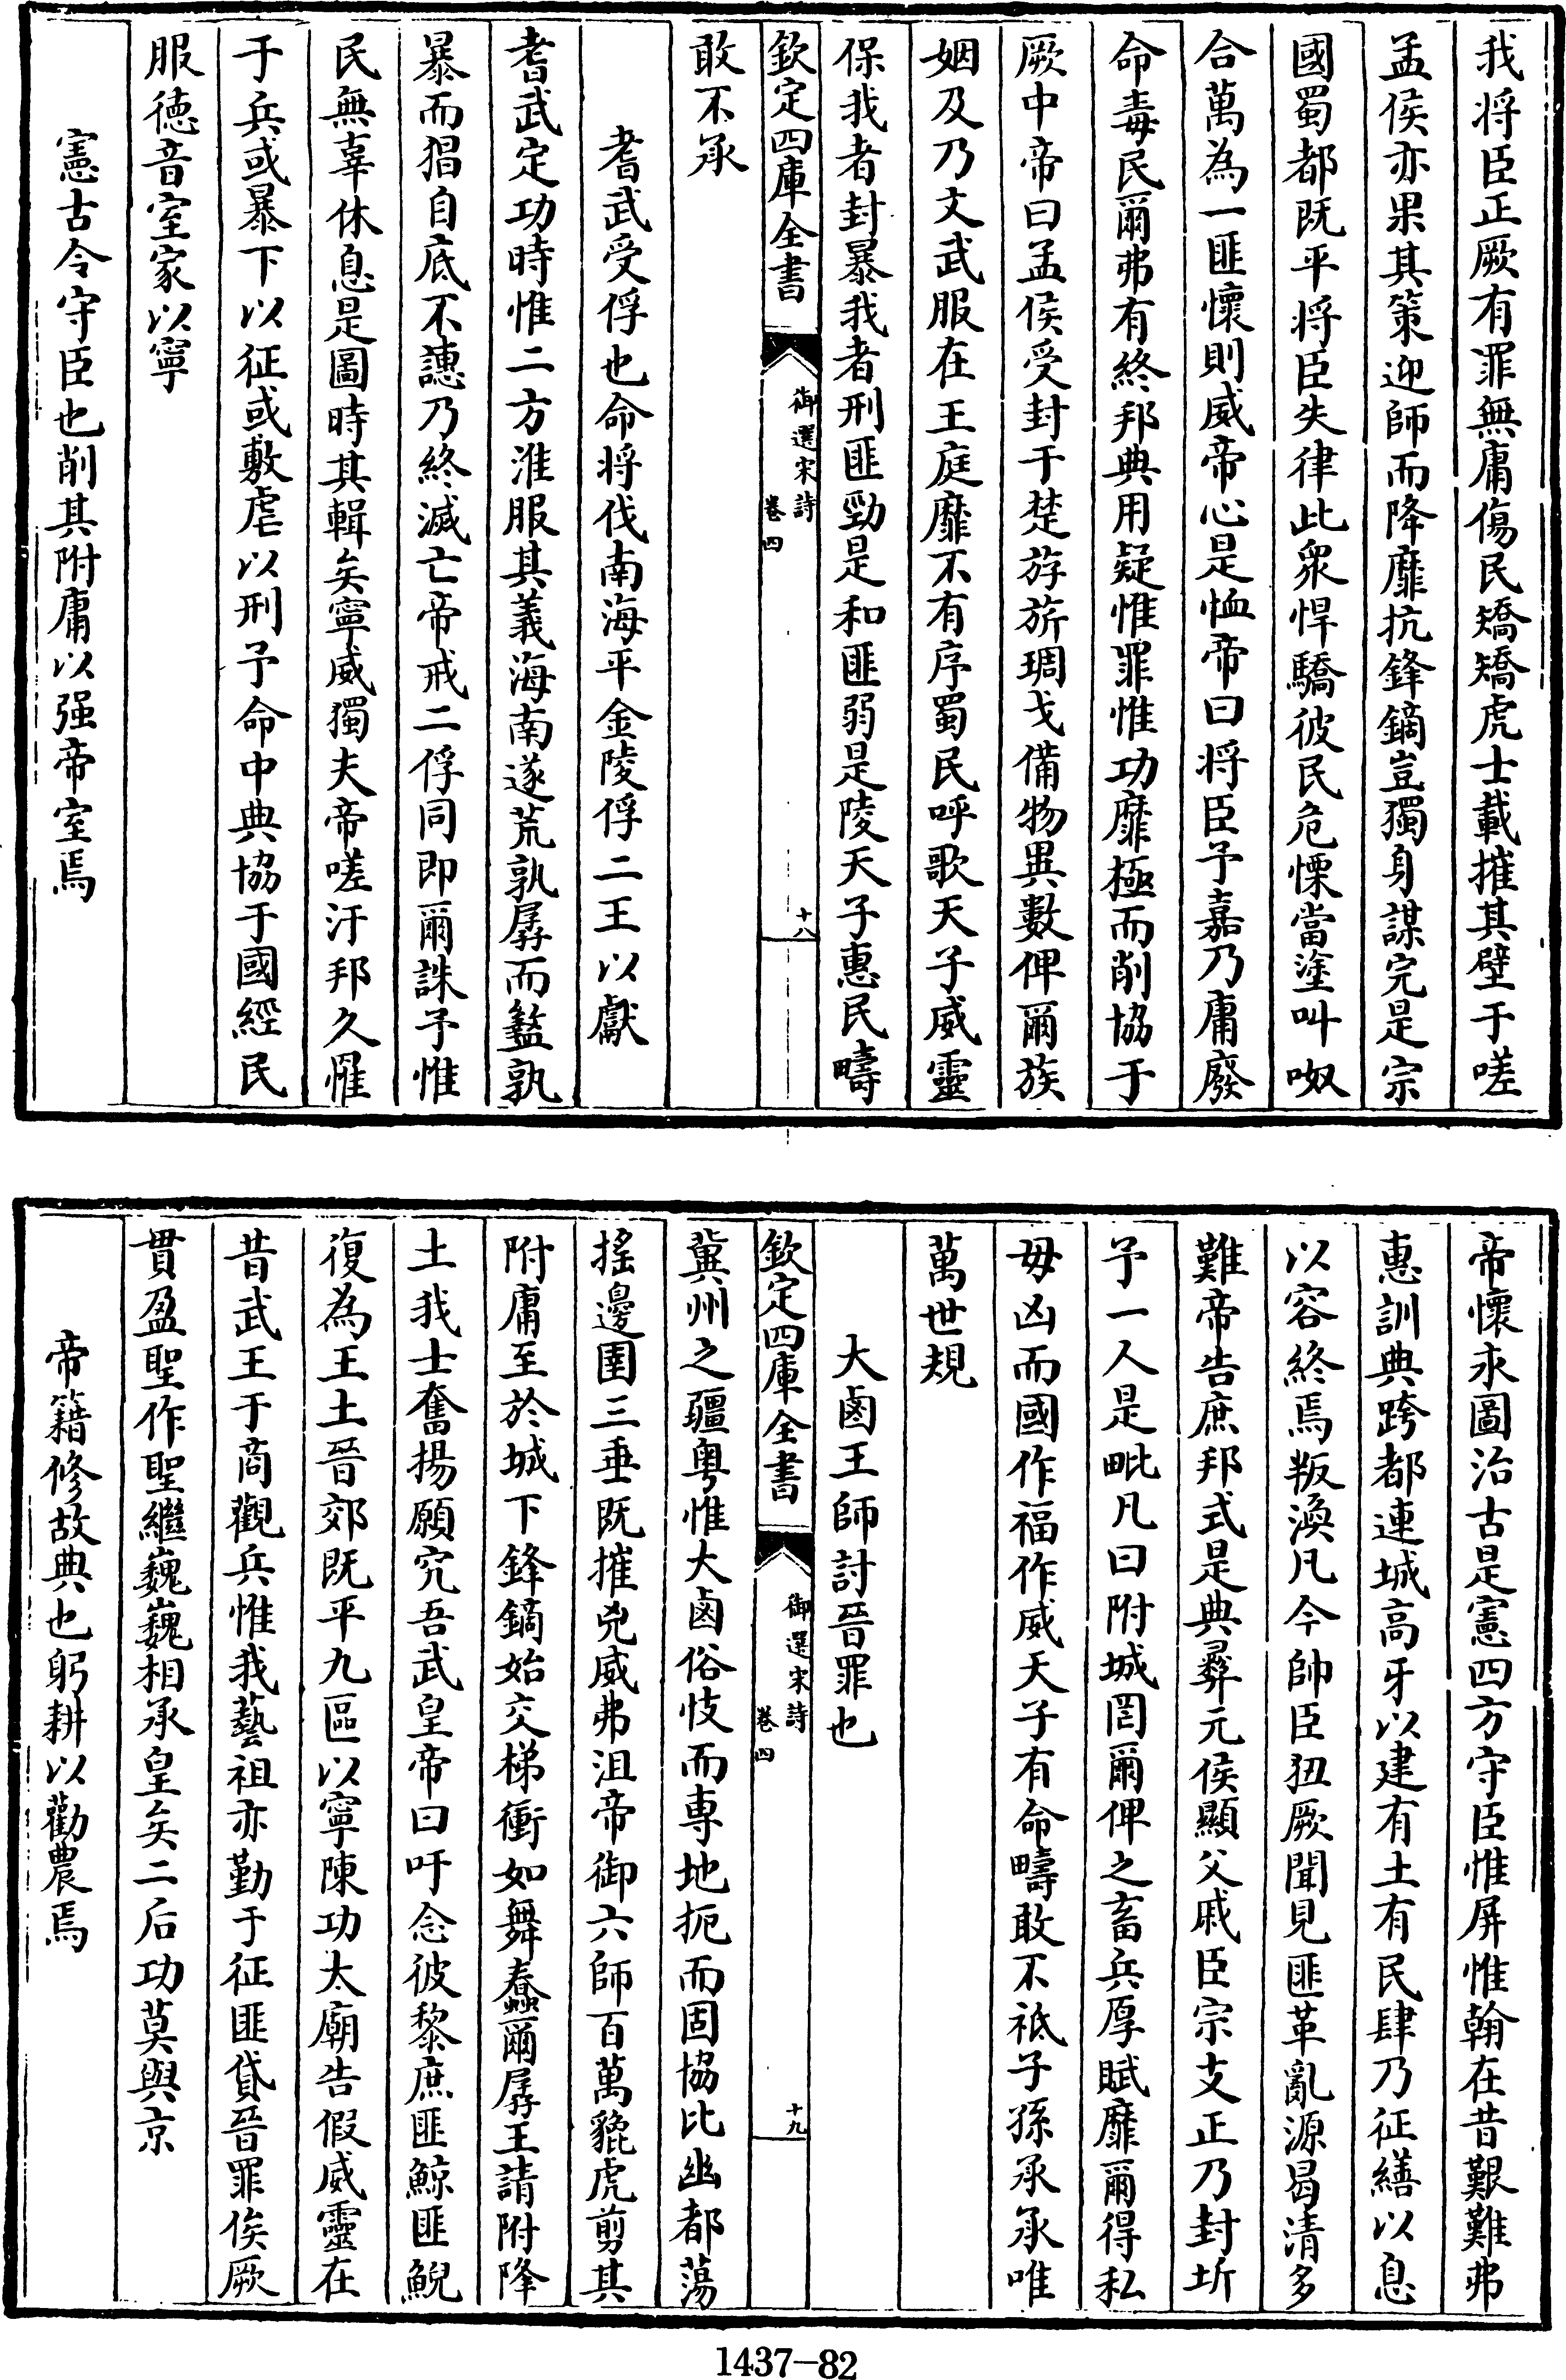 我将臣正厥有罪無庸傷民矯矯虎士載摧其壁于嗟
孟侯亦果其策迎師而降靡抗鋒鏑豈獨身謀完是宗
國蜀都既平将臣失律此衆悍驕彼民危慄當塗叫呶
合萬為一匪懷則威帝心是恤帝曰将臣予嘉乃庸廢
命毒民爾弗有終邦典用疑惟罪惟功靡極而削協于
厥中帝曰孟侯受封于楚斿旂琱戈備物異數俾爾族
姻及乃文武服在王庭靡不有序蜀民呼歌天子威靈
保我者封暴我者刑匪勁是和匪弱是陵天子惠民疇
欽定四庫全書
御選宋詩
卷四
十八
敢不承
耆武受俘也命将伐南海平金陵俘二王以獻
耆武定功時惟二方淮服其義海南遂荒孰孱而盭孰
暴而猖自底不譓乃終滅亡帝戒二俘同即爾誅予惟
民無辜休息是圖時其輯矣寧威獨夫帝嗟汙邦久罹
于兵或暴下以征或敷虐以刑予命中典協于國經民
服德音室家以寧
憲古令守臣也削其附庸以强帝室焉
帝懷永圖治古是憲四方守臣惟屏惟翰在昔艱難弗
惠訓典跨都連城高牙以建有土有民肆乃征繕以息
以容終焉叛渙凡今帥臣狃厥聞見匪革亂源曷清多
難帝告庶邦式是典彛元侯顯父戚臣宗支正乃封圻
予一人是毗凡曰附城罔爾俾之畜兵厚賦靡爾得私
毋凶而國作福作威天子有命疇敢不祗子孫承承唯
萬世規
大鹵王師討晉罪也
欽定四庫全書
御選宋詩
卷四
十九
冀州之疆粤惟大鹵俗忮而専地扼而固協比幽都蕩
搖邊圉三垂既摧兇威弗沮帝御六師百萬貔虎剪其
附庸至於城下鋒鏑始交梯衝如舞蠢爾孱王請附降
土我士奮揚願究吾武皇帝曰吁念彼黎庶匪鯨匪鯢
復為王土晉郊既平九區以寧陳功太廟告假威靈在
昔武王于商觀兵惟我藝祖亦勤于征匪貸晉罪俟厥
貫盈聖作聖繼巍巍相承皇矣二后功莫與京
帝籍修故典也躬耕以勸農焉
1437—82